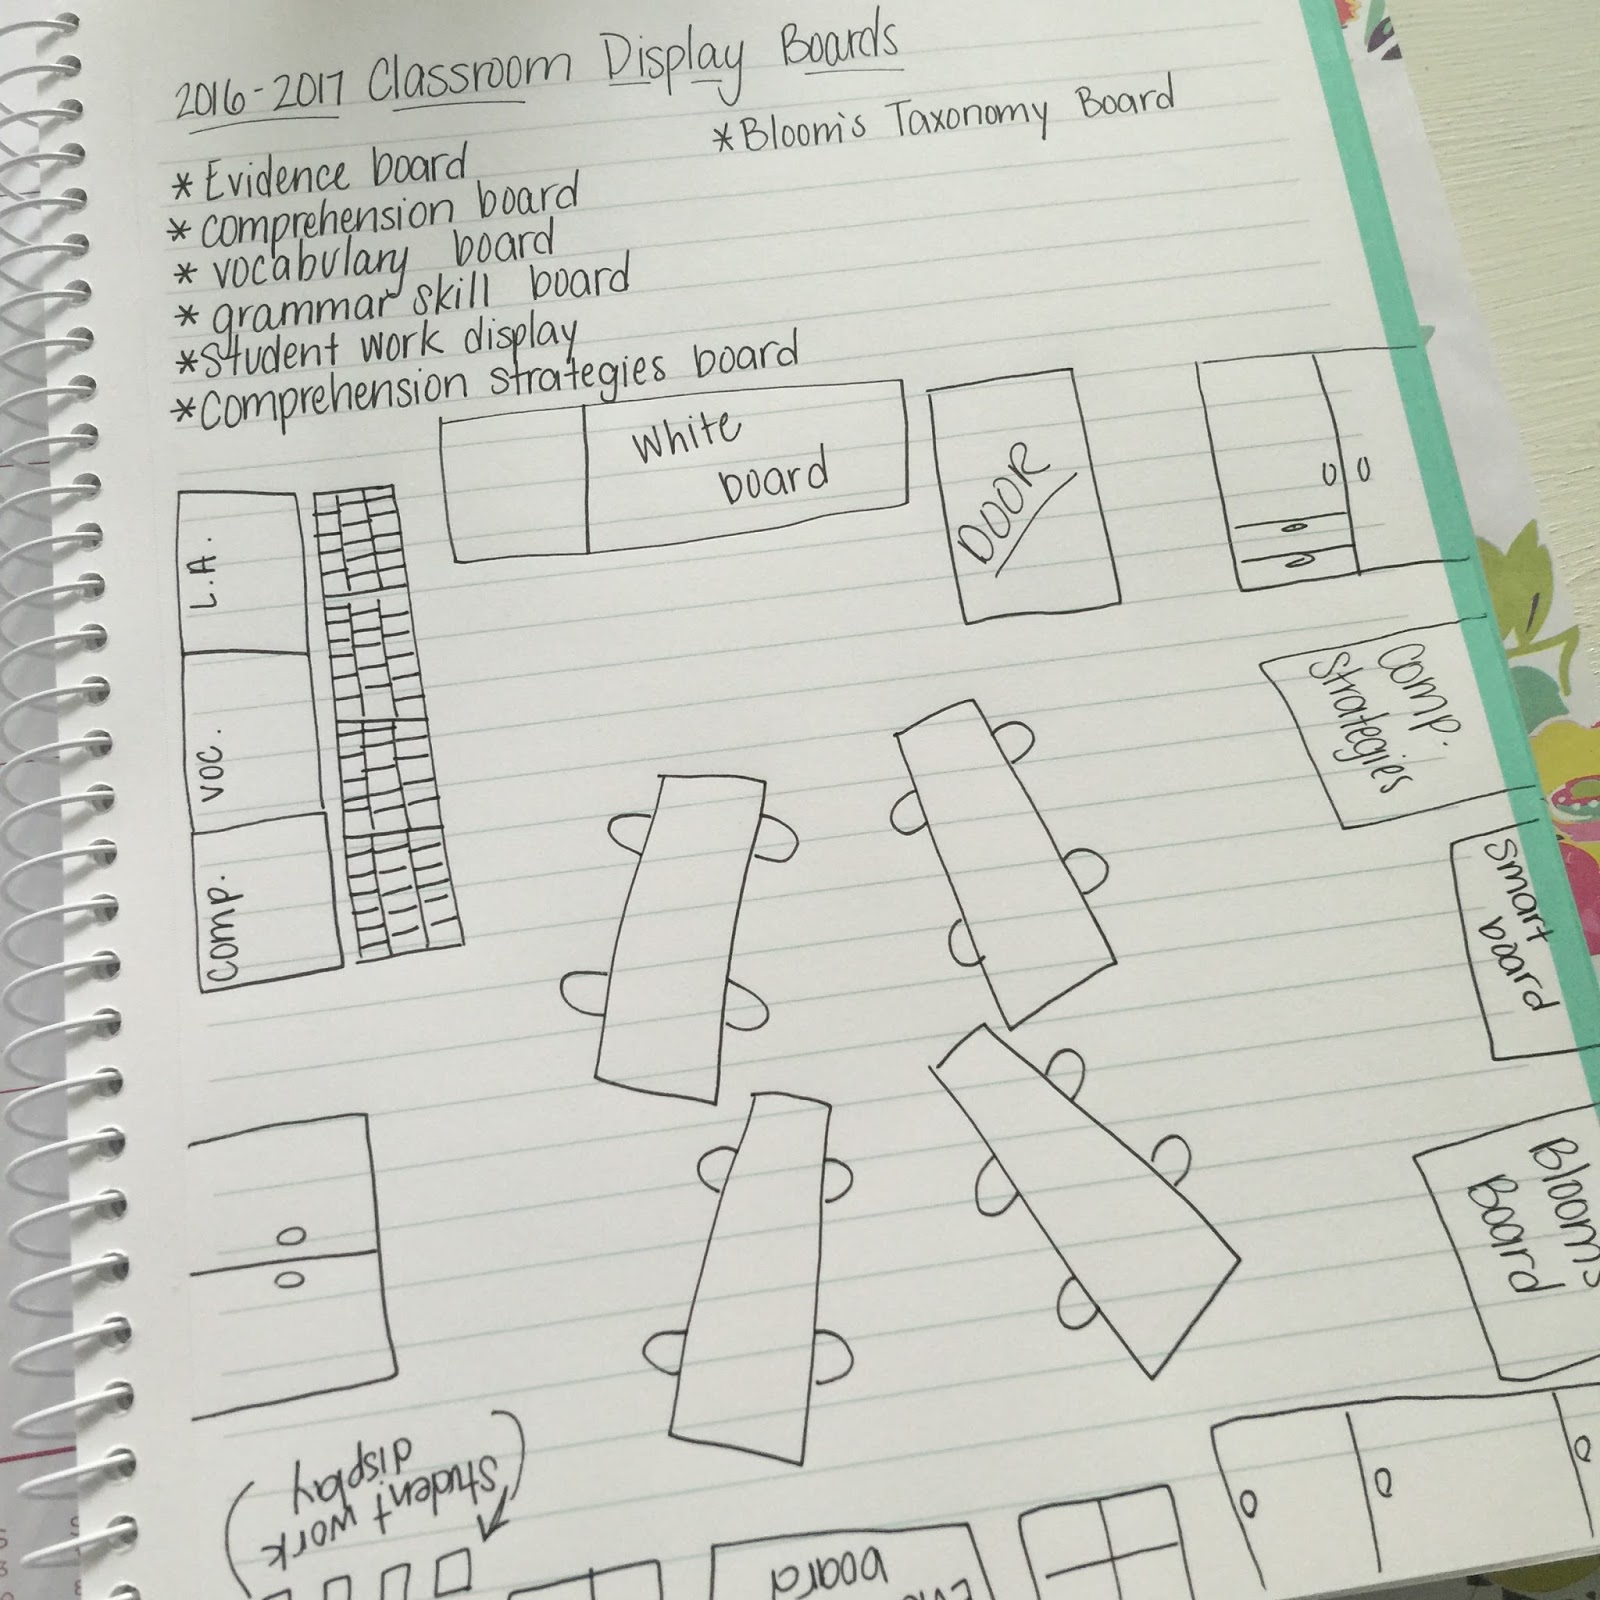 2016-2017 Classroom Display Boards
*Bloom's Taxonomy Board
* Evidence board
* comprehension board
* vocabulary board
* grammar skill board
*Student work display
*Comprehension strategies board
White
board
DOOR
L.A.
Voc.
Comp.
Comp.
Strategies
Smart
board
Blooms
Board
Student work
display
board